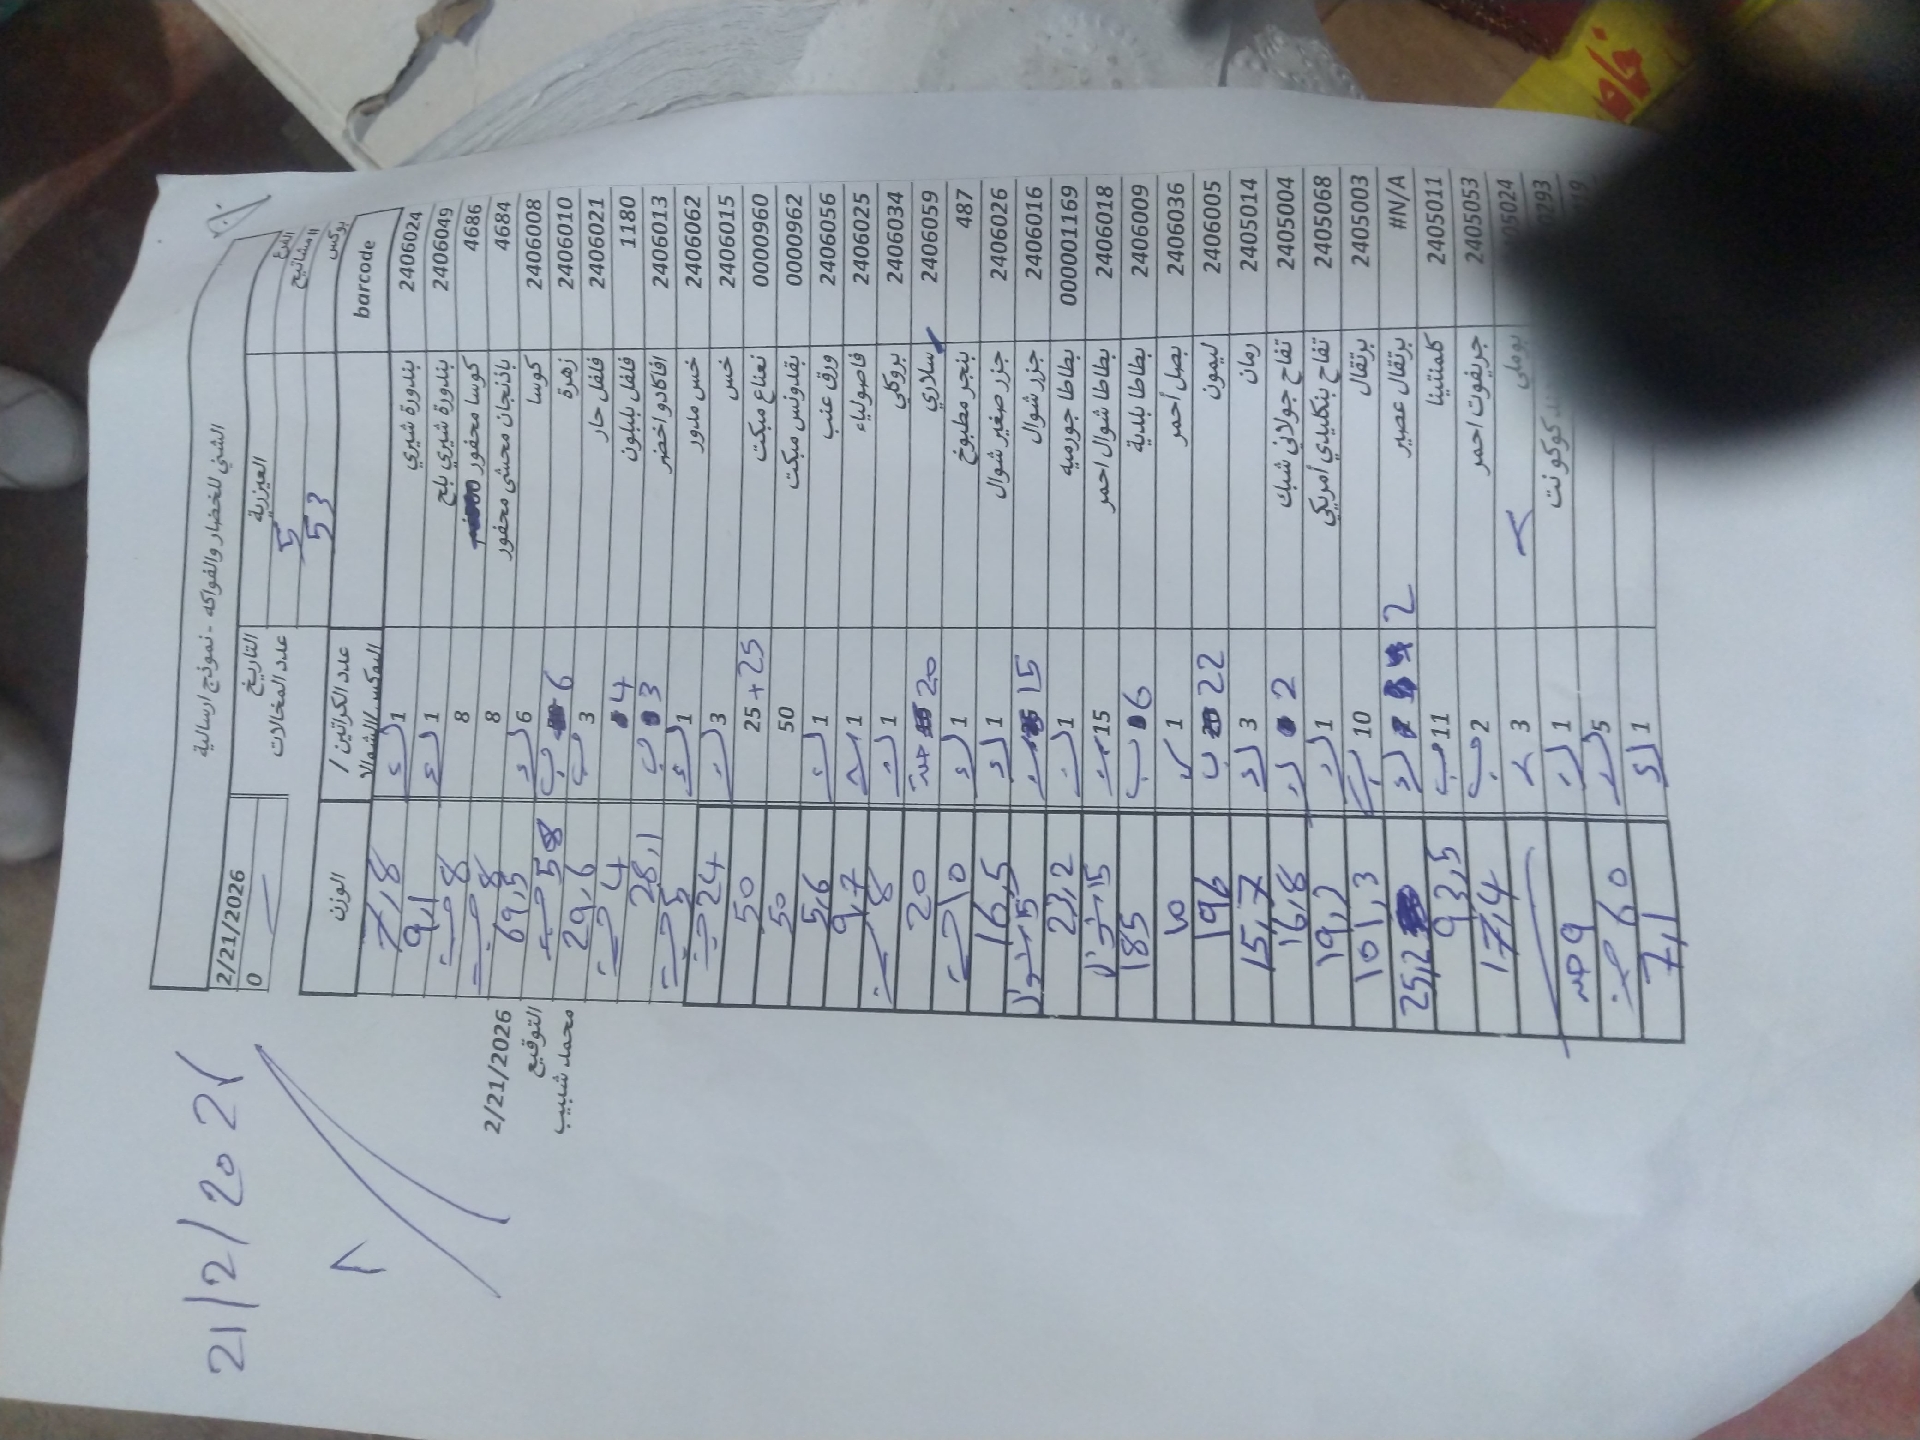 الشني للخضار والفواكه - نموذج ارسالية
الفرع العيزرية التاريخ 2/21/2026
المشاتيح 5 عدد المخالات 0
بوكس 53
barcode عدد الكراتين / البوكس/الشوالا الوزن
2406024 بندورة شيري 1 7,8
2406049 بندورة شيري بلح 1 9,1
4686 كوسا محفور 8 8
4684 باذنجان محشي محفور 8 8
2406008 كوسا 6 69,5
2406010 زهرة 6 58
2406021 فلفل حار 3 29,6
1180 فلفل بلبلون 4 4
2406013 افاكادو اخضر 3 28,1
2406062 خس مدور 1 5
2406015 خس 3 24
0000960 نعناع مبكت 25 + 25 50
0000962 بقدونس مبكت 50 50
2406056 ورق عنب 1 5,6
2406025 فاصولياء 1 9,7
2406034 بروكلي 1 8
2406059 سلاري 20 20
487 بنجر مطبوخ 1 10
2406026 جزر صغير شوال 1 16,5
2406016 جزر شوال 15 15 شوال
000001169 بطاطا جورميه 1 23,2
2406018 بطاطا شوال احمر 15 15
2406009 بطاطا بلدية 6 185
2406036 بصل أحمر 1
2406005 ليمون 22 196
2405014 رمان 3 15,7
2405004 تفاح جولاني شبك 2 16,8
2405068 تفاح بنكليدي أمريكي 1
2405003 برتقال 10 101,3
#N/A برتقال عصير 2 25,2
2405011 كلمنتينا 11 93,5
2405053 جريفوت احمر 2 17,4
بوملي 3
كوكونت 1 9
5 60
1 7,1
2/21/2026
التوقيع
محمد شبيب
21/2/202